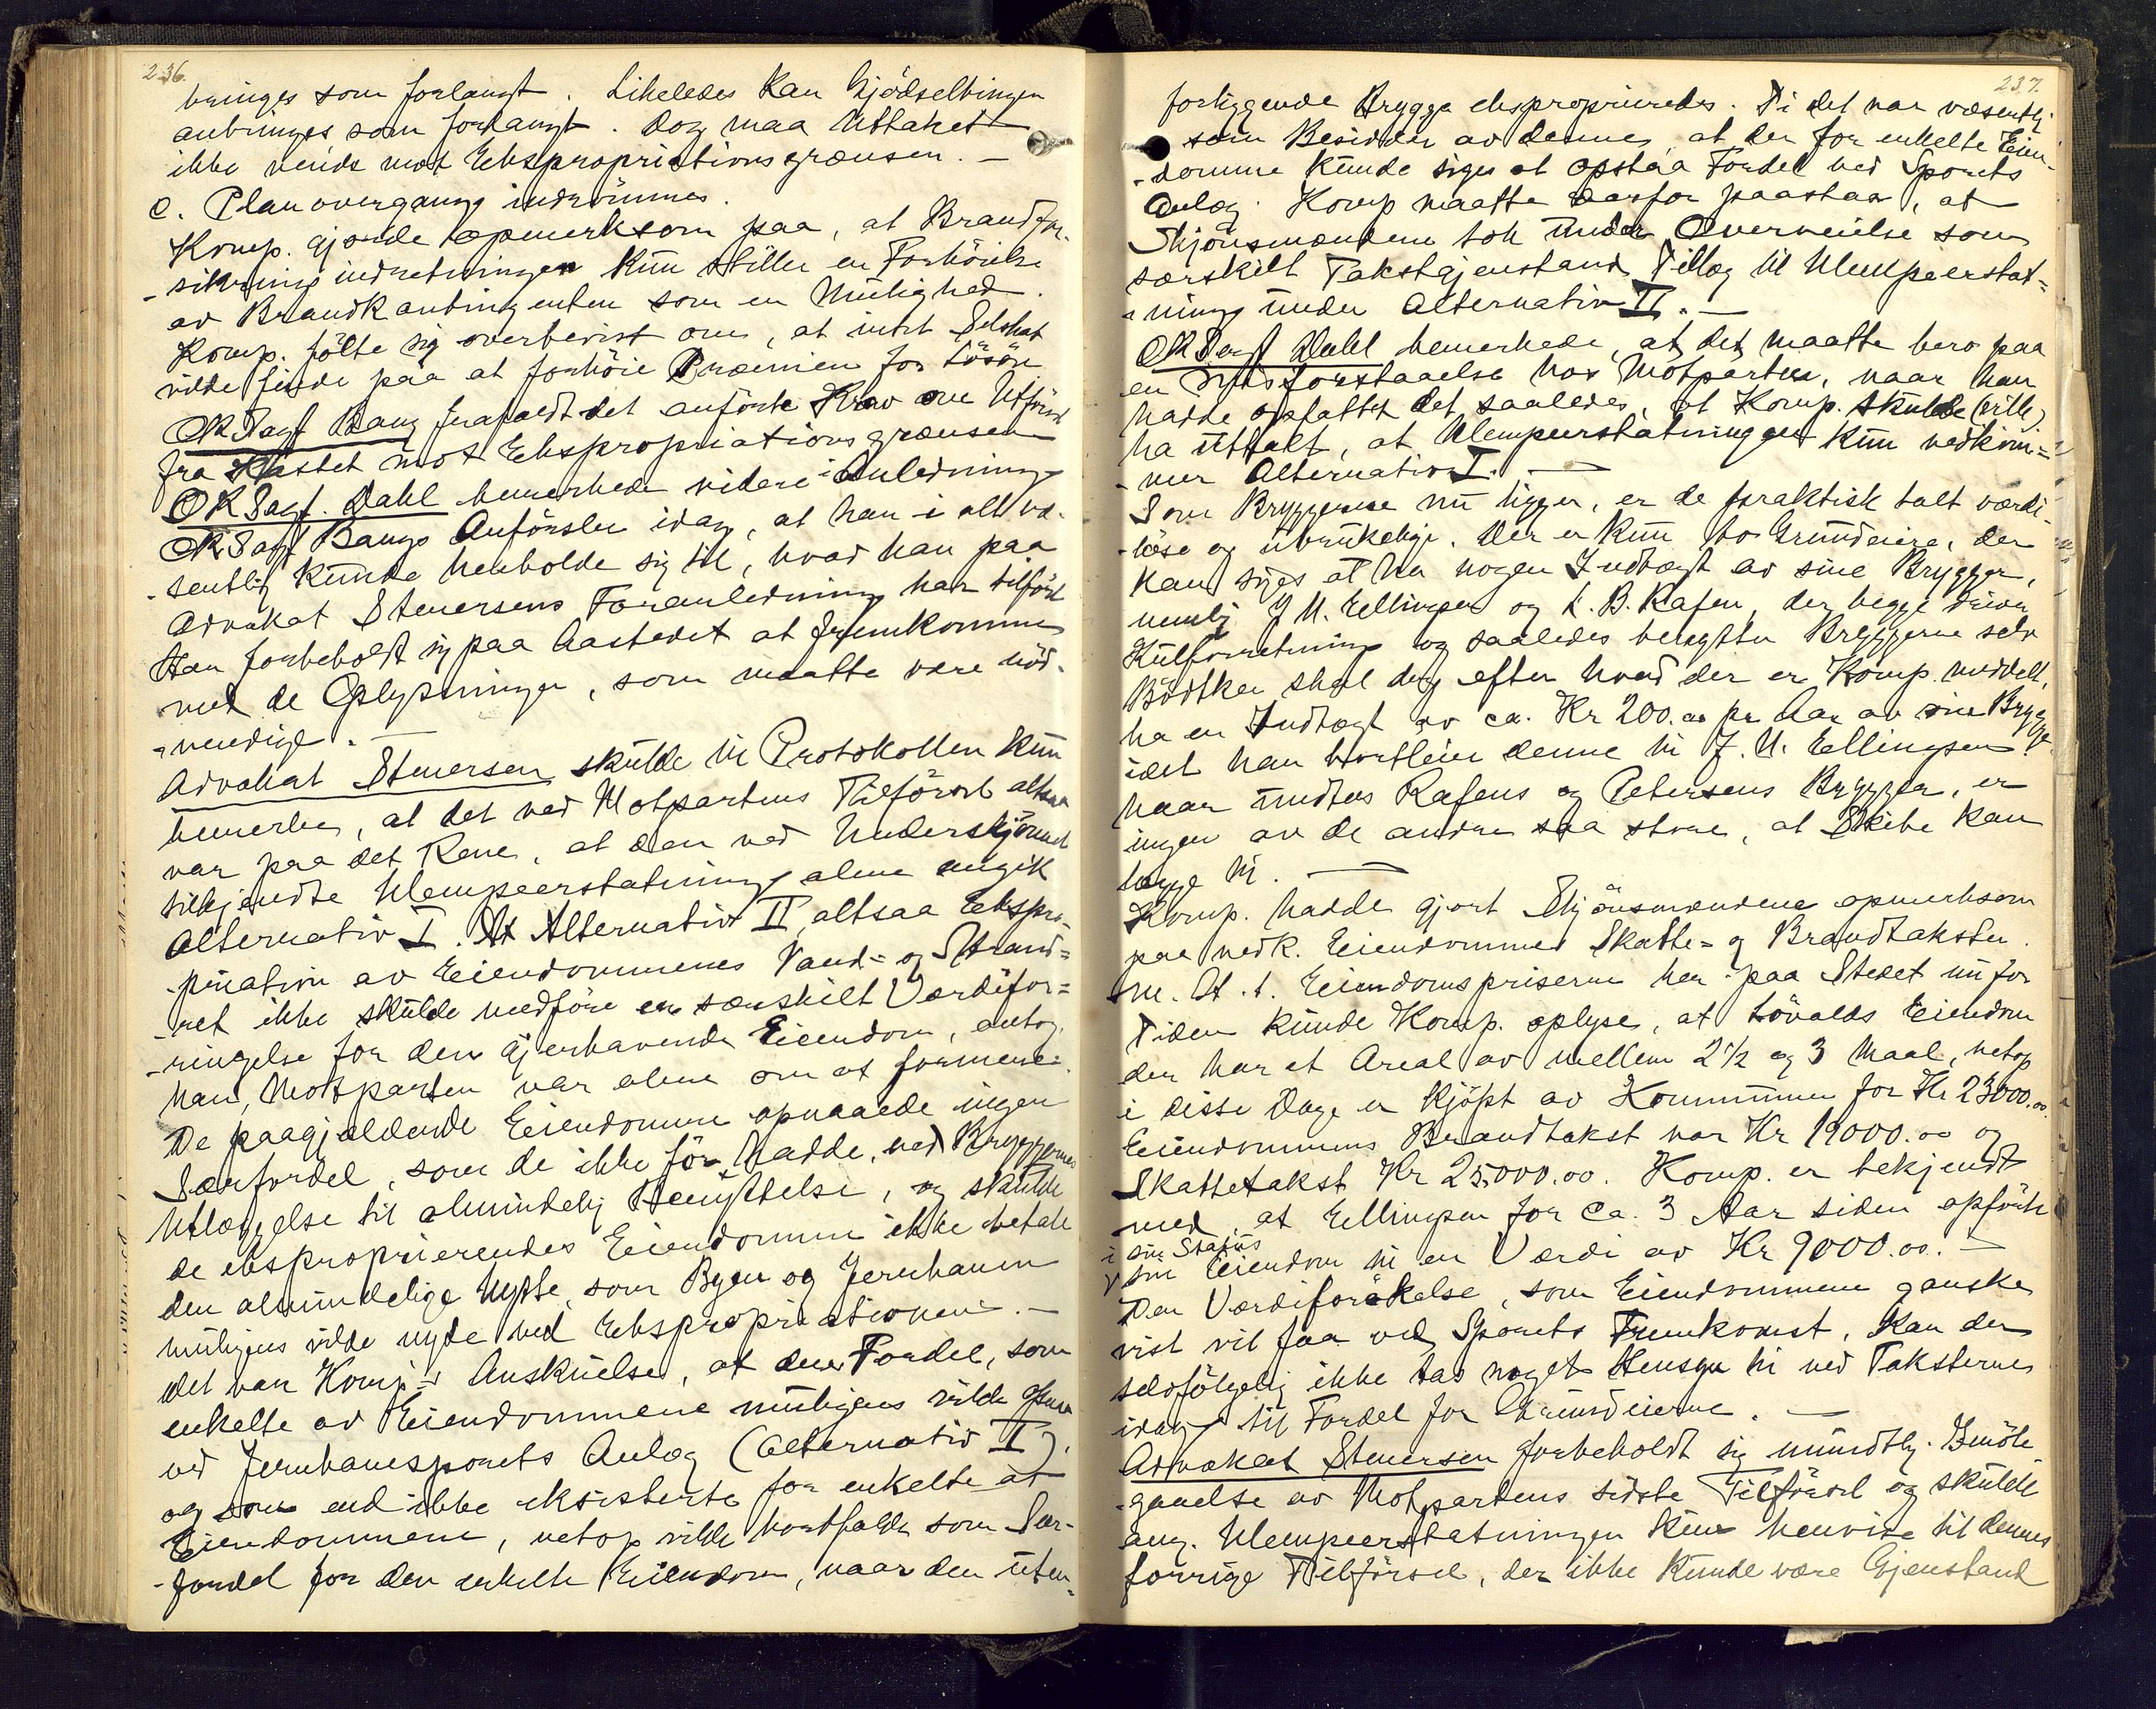 236.
bringes som forlangt. Likeledes kan Gjödselbingen
anbringes som forlangt. Dog maa Uttaket
ikke vends mot Ekspropriationsgrænsen. —
e. Planovergang indrömmes.
Komp. gjorde opmerksom paa, at Brandfor-
-sikringsindretningen kun stiller en Forhöielse
av Brandkontingenten som en Mulighed.
Komp. fölte sig overbevist om, at intet Selskab
vilde finde paa at forhöie Præmien for
OKSagf Bang frafaldt det anförte Krav om Utförsel
fra Stedet mot Ekspropriationsgrænsen
OKSagf. Dahl bemerkede videre i Anledning
OKSagf Bangs Anförsler idag, at han i alt væ-
-sentlig kunde henholde sig til, hvad han paa
Advokat Stenersens Foranledning har tilfört
Han forbeholdt sig paa Aastedet at fremkomme
med de Oplysninger, som maatte være nöd-
-vendige. —
Advokat Stenersen skulde til Protokollen kun
bemerke, at det ved Motpartens Tilförsel altsaa
var paa det Rene, at den ved Underskjönnet
tilkjendte Ulempeerstatning alene angik
Alternativ I. At Alternativ II, altsaa Ekspro-
-priation av Eiendommenes Vand- og Strand-
-ret ikke skulde medföre en særskilt Værdifor-
-ringelse for den gjenhavende Eiendom, antog
han, Motparten var alene om at formene.
De paagjældende Eiendomme opnaaede ingen
Særfordel, som de ikke för hadde, ved Bryggernes
Utlæggelse til almindelig Benyttelse, og skulde
de eksproprierendes Eiendomme ikke betale
den almindelige Nytte, som Byen og Jernbanen
muligens vilde nyde ved Ekspropriationen. —
Det var Komp's Anskuelse, at den Fordel, som
enkelte av Eiendommene muligens vilde opnaa
ved Jernbanesporets Anlæg (Alternativ I).
og som end ikke eksisterte for enkelte av
Eiendommene, netop vilde bortfalde som Sær-
-fordel for den enkelte Eiendom, naar den uten-
237.
forliggende Brygge eksproprieredes. Ti det var væsentlig
som Besidder av denne, at der for enkelte Eien-
-domme kunde siges at opstaa Fordel ved Sporets
Anlæg. Komp maatte derfor paastaa, at
Skjönsmændene tok under Overveielse som
særskilt Takstgjenstand Tillæg til Ulempeerstat-
-ning under Alternativ II. —
OKSagf Dahl bemerkede, at det maatte bero paa
en Misforstaaelse hos Motparten, naar han
hadde opfattet det saaledes, at Komp. skulde (ville)
ha uttalt, at Ulempeerstatningen kun vedkom-
-mer Alternativ I. —
Som Bryggerne nu ligger, er de praktisk talt værdi-
-löse og ubrukelige. Der er kun to Grundeiere, der
kan siges at ha nogen Indtægt av sine Brygger,
nemlig J. M. Ellingsen og K. B. Rafen, der begge driver
Kulforretning og saaledes benytter Bryggerne selv
Bödtker skal dog efter hvad der er Komp. meddelt,
ha en Indtægt av ca. Kr 200.00 pr Aar av sin Brygge
idet han bortleier denne til J. M. Ellingsen
Naar undtas Rafens og Petersens Brygger, er
ingen av de andre saa store, at Skibe kan
lægge til. —
Komp. hadde gjort Skjönsmændene opmerksom
paa vedk. Eiendommes Skatte- og Brandtakster
m. At. t. Eiendomspriserne her paa Stedet nu for
Tiden kunde Komp. oplyse, at Lövalds Eiendom
der har et Areal av mellem 2½ og 3 Maal, netop
i disse Dage er kjöpt av Kommunen for Kr 23000.00.
Eiendommens Brandtakst var Kr 19000.00 og
Skattetakst Kr 25.000.00. Komp. er bekjendt
med, at Ellingsen for ca. 3 Aar siden opförte
i sin Status
v sin Eiendom til en Værdi av Kr 9000.00. —
Den Værdiforökelse, som Eiendommene ganske
vist vil faa ved Sporets Fremkomst, kan der
selvfölgelig ikke tas noget Hensyn til ved Taksterne
idag til Fordel for Grundeierne. —
Advokat Stenersen forbeholdt sig mundtlig Imöte-
-gaaelse av Motpartens sidste Tilförsel og skulde
ang. Ulempeerstatningen kun henvise til dennes
forrige Tilförsel, der ikke kunde være Gjenstand